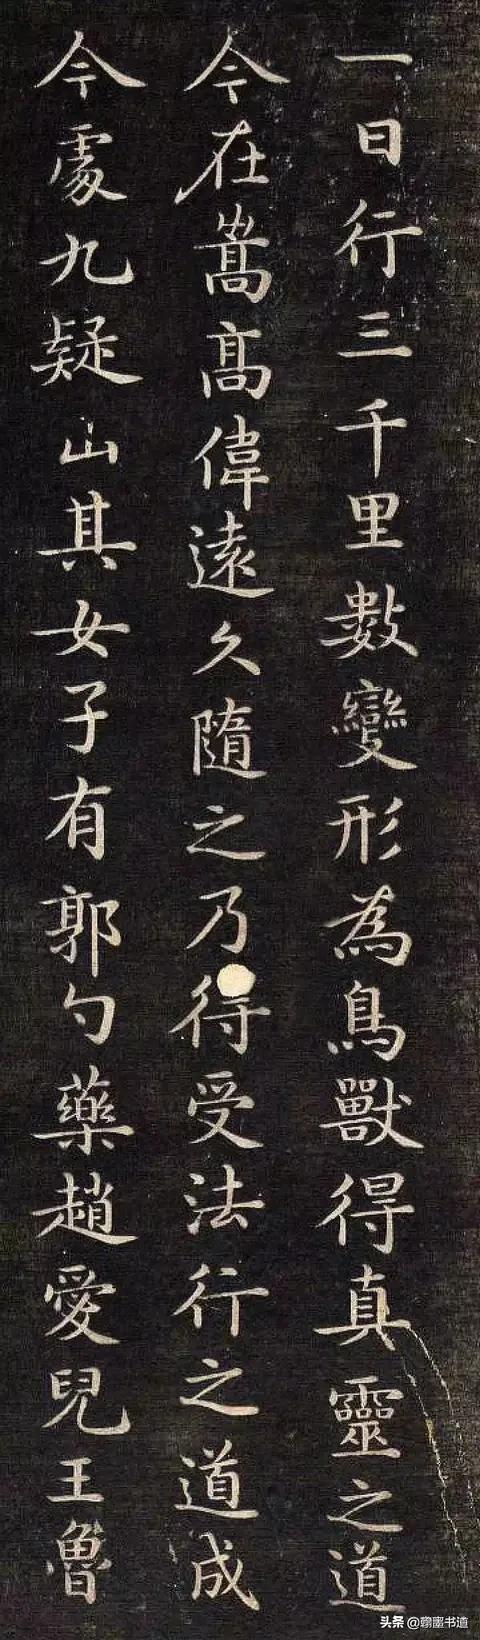 一日行三千里數變形為鳥獸得真靈之道
今在嵩高偉遠久隨之乃得受法行之道成
今處九疑山其女子有郭勺藥趙愛兒王魯
头条 @翰墨书道